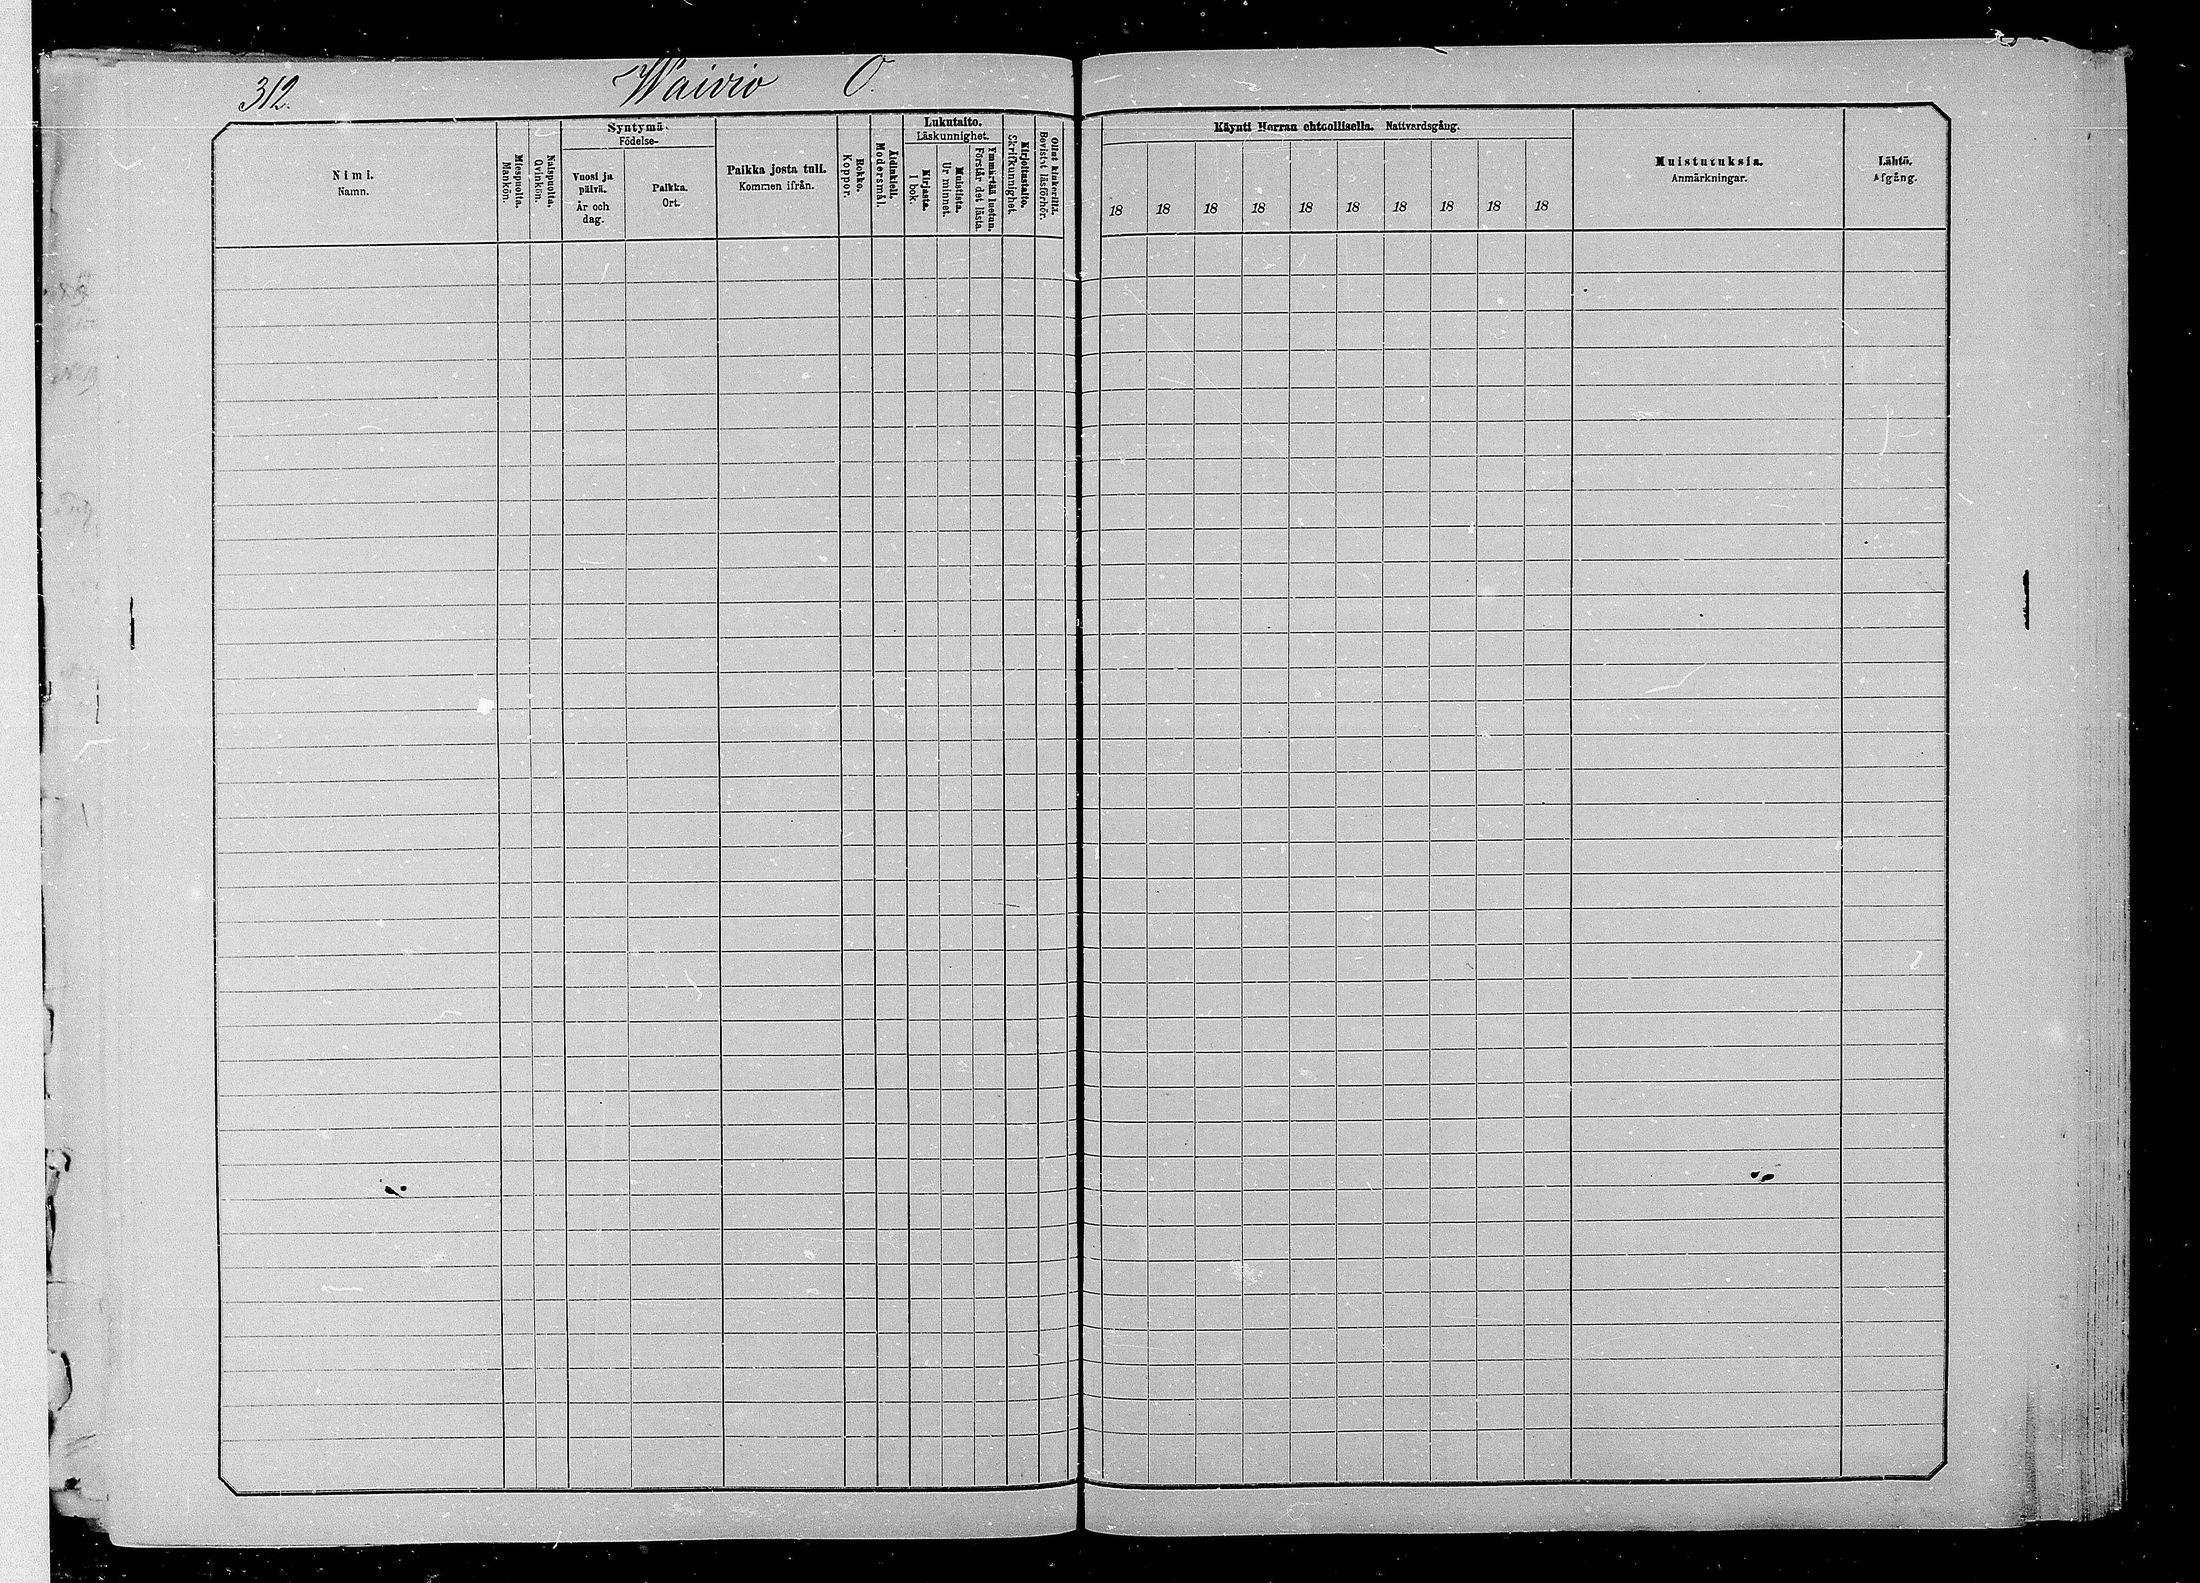 312.
Waivio O.
Nimi.
Namn.
Miespuolta.
Mankön.
Naispuolta.
Qvinkön.
Syntymä-
Födelse-
Vuosi ja
päivä.
År och
dag.
Paikka.
Ort.
Paikka josta tuli.
Kommen ifrån.
Rokko.
Koppor.
Äidinkieli.
Modersmål.
Lukutaito.
Läskunnighet.
Kirjasta.
I bok.
Muistista.
Ur minnet.
Ymmärtää luetun.
Förstår det lästa.
Kirjoitustaito.
Skrifkunnighet.
Ollut kinkerillä.
Bevistat läsförhör.
Käynti Herran ehtoollisella. Nattvardsgång.
18 18 18 18 18 18 18 18 18 18
Muistutuksia.
Anmärkningar.
Lähtö.
Afgång.